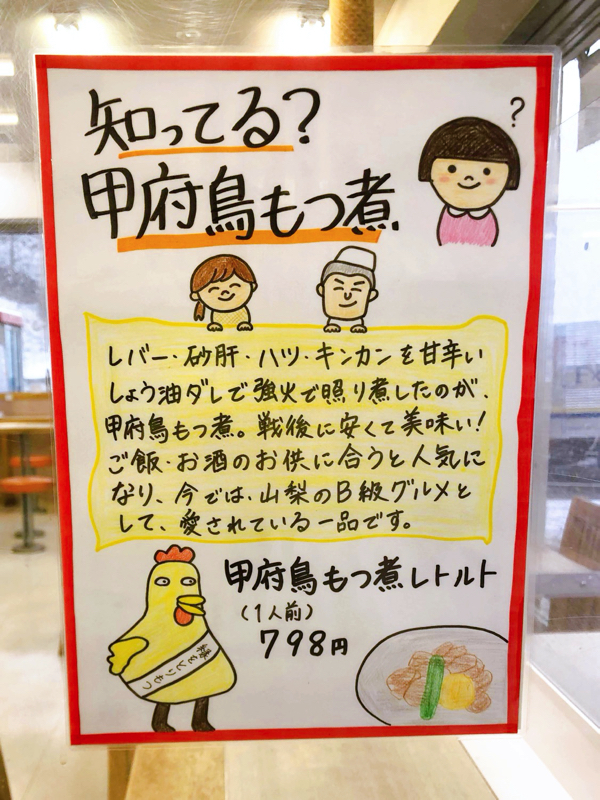 知ってる?
?
甲府鳥もつ煮
レバー・砂肝・ハツ・キンカンを甘辛い
しょう油ダレで強火で照り煮したのが、
甲府鳥もつ煮。戦後に安くて美味い!
ご飯・お酒のお供に合うと人気に
なり、今では、山梨のB級グルメと
して、愛されている一品です。
甲府鳥もつ煮レトルト
(1人前)
798円
縁をとりもつ